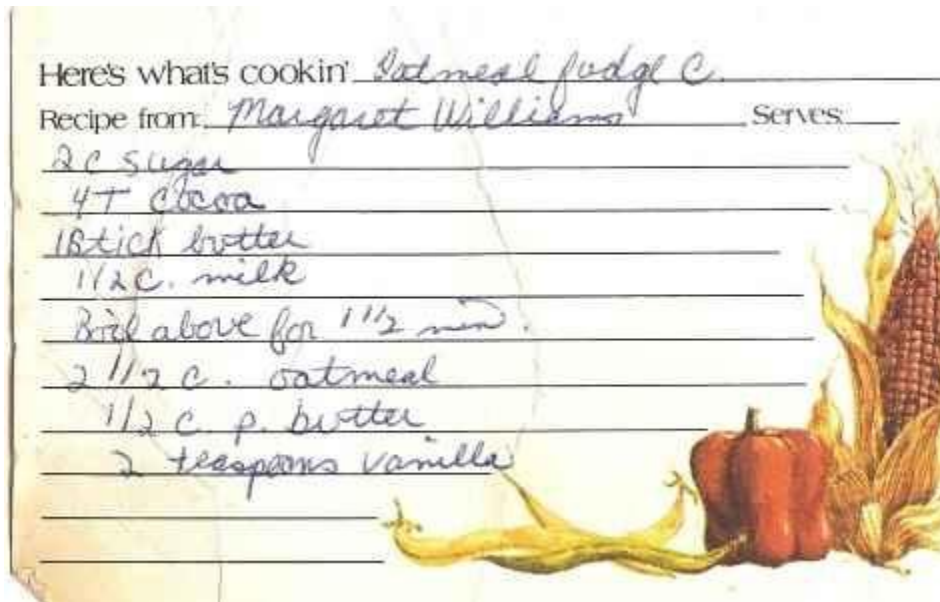 Here's what's cookin' Oatmeal fudge C.
Recipe from: Margaret Williams Serves:
2 C sugar
4 T cocoa
1 Stick butter
1/2 C. milk
Boil above for 1 1/2 min.
2 1/2 c. oatmeal
1/2 c. p. butter
2 teaspoons vanilla